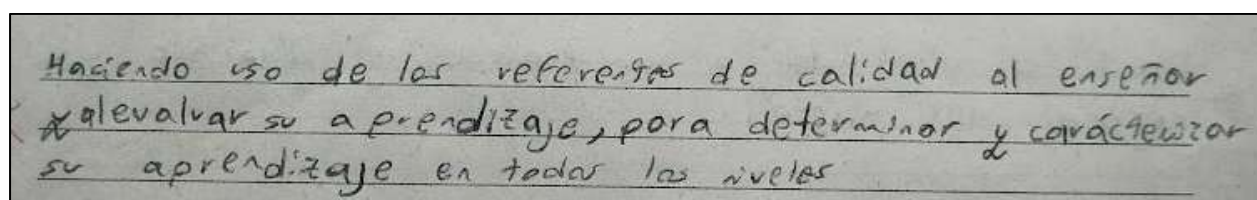 Haciendo uso de los referentes de calidad al enseñar
y al evaluar su aprendizaje, para determinar y carácterizar
su aprendizaje en todos los niveles